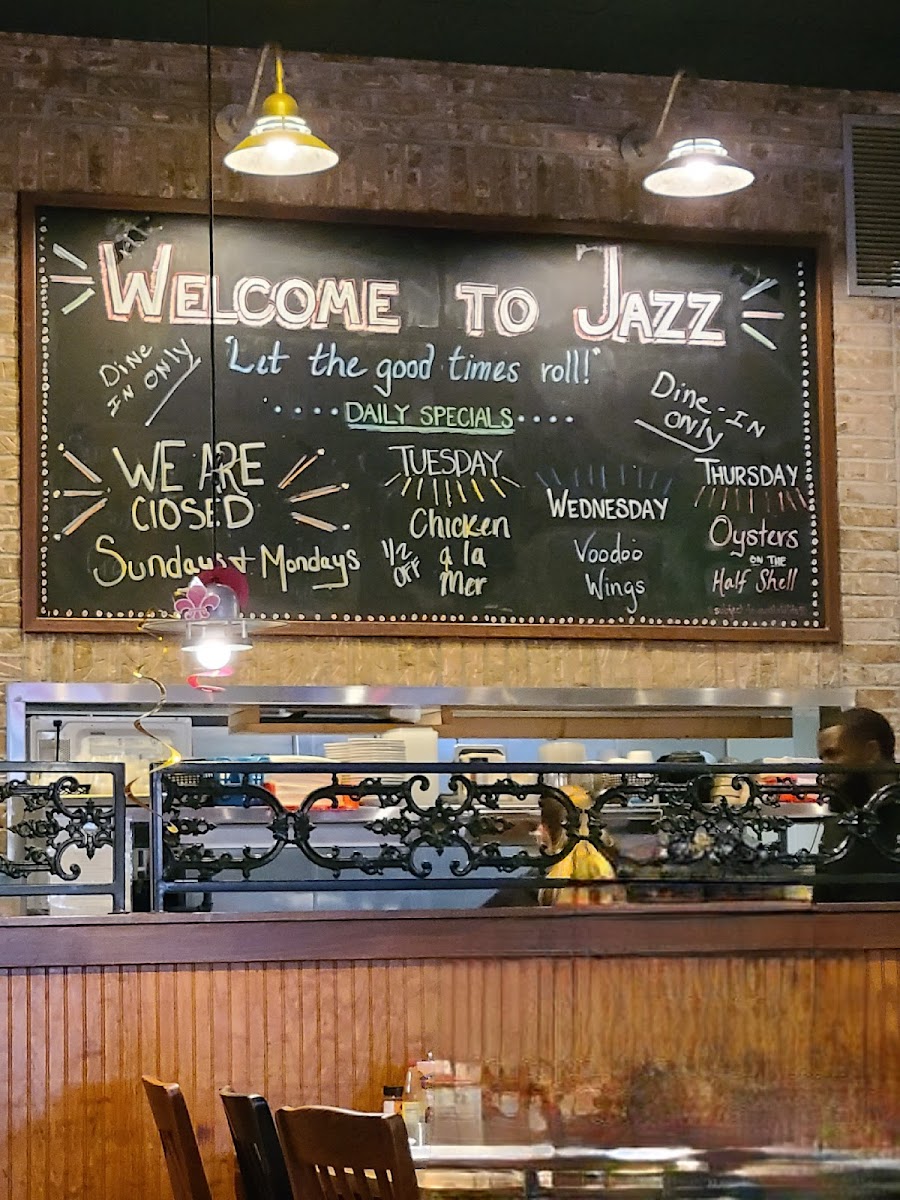 WELCOME TO JAZZ
"Let the good times roll!"
DINE
IN ONLY
Dine-IN
ONLY
DAILY SPECIALS
WE ARE
CLOSED
Sundays + Mondays
TUESDAY
Chicken
a la
Mer
1/2
OFF
WEDNESDAY
Voodoo
Wings
THURSDAY
Oysters
ON THE
Half Shell